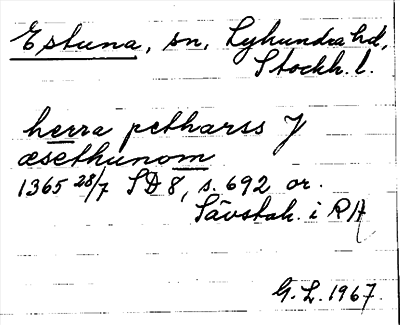 Estuna, sn, Lyhundra hd,
Stockh. l.
herra petharss J
æsethunom
1365 28/7 SD 8, s. 692 or.
Sävstah. i RA
G. L. 1967.